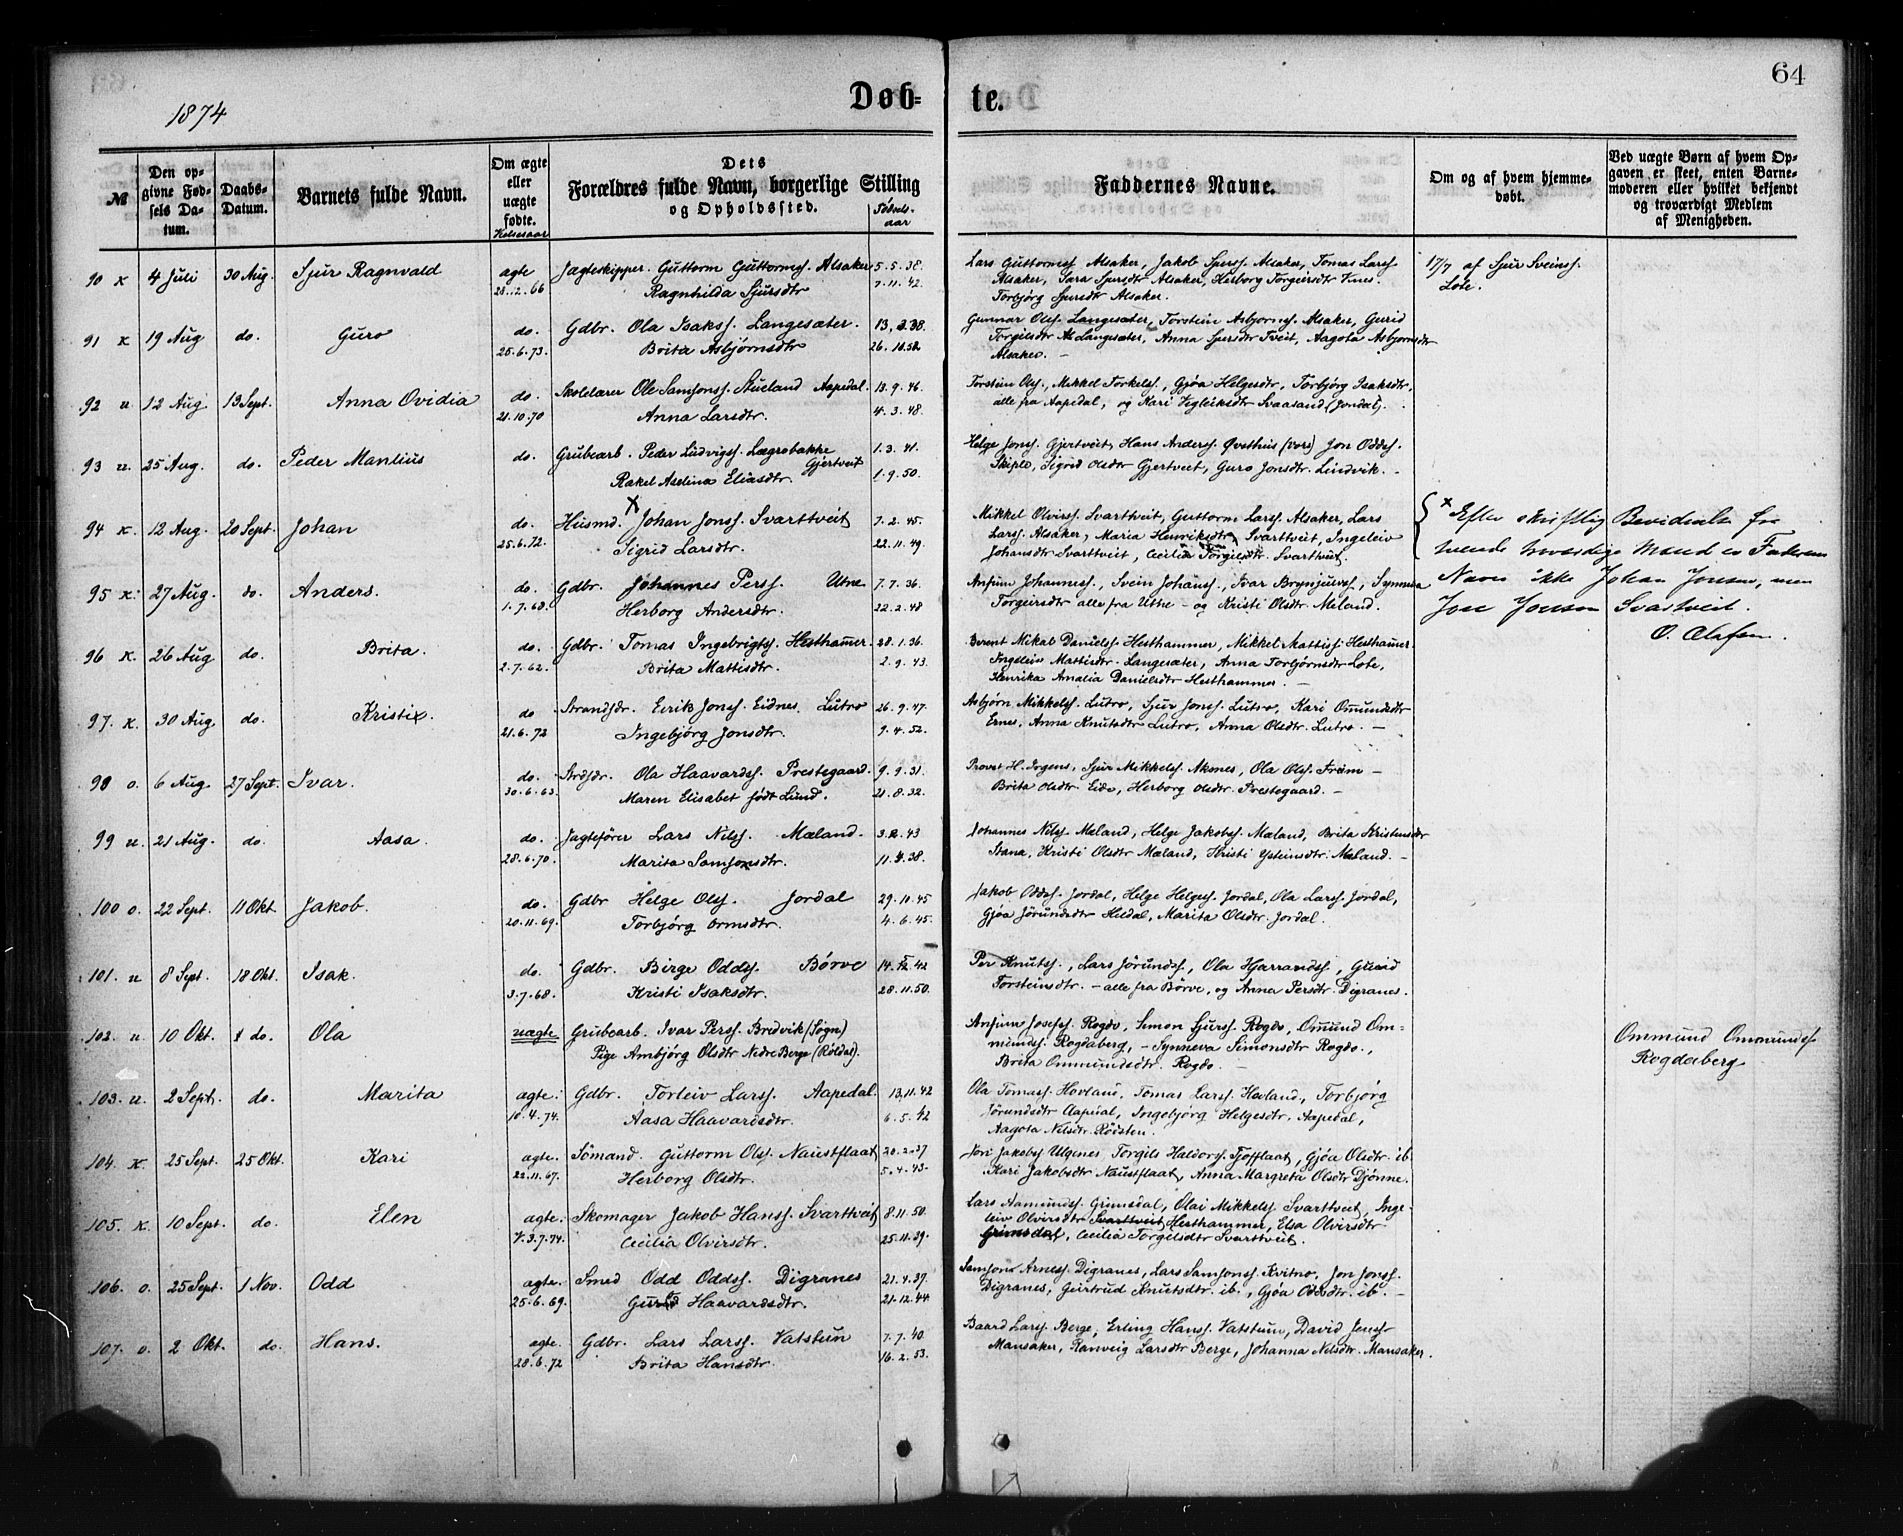 64
1874
Døb-
te.
№
Den op-
givne Fød-
sels Da-
tum.
Daabs-
Datum.
Barnets fulde Navn.
Om ægte
eller
uægte
fødte.
Dets
Forældres fulde Navn, borgerlige Stilling
og Opholdssted.
Fødsels-
aar
Faddernes Navne.
Om og af hvem hjemme-
døbt.
Ved uægte Børn af hvem Op-
gaven er skeet, enten Barne-
moderen eller hvilket bekjendt
og troværdigt Medlem
af Menigheden.
90 K 4 Juli 30 Aug. Sjur Ragnvald ægte Jægteskipper. Guttorm Guttormss. Alsaker 5.5.38.
28.2.66 Ragnhilda Sjursdtr 7.11.42.
Lars Guttormss Alsaker, Jakob Sjurss. Alsaker, Tomas Larss
Alsaker, Sara Sjursdtr Alsaker, Herborg Torgeirsdtr
Torbjørg Sjursdtr Alsaker.
17/7 af Sjur Sveinss.
Lote.
91 K 19 Aug do. Guro do. Gdbr. Ola Isakss. Langesæter. 13.
25.6.73. Brita Asbjørnsdtr 26.10.52
Gunnar Olss. Langesæter, Torstein Asbjørnss. Alsaker, Gurid
Torgilsdtr Langesæter, Anna Sjursdtr Tveit, Aagota Asbjørnsdtr
Alsaker. —
92 u 12 Aug 13 Sept. Anna Ovidia do. Skolelærer Ole Samsonss. Stueland Aapedal. 13.9.46.
21.10.70 Anna Larsdtr. 4.3.48.
Torstein Olss., Mikkel Torkelss., Gjøa Helgesdtr, Torbjørg Isaksdtr,
alle fra Aapedal, og Kari Vigleiksdtr Svaasand (Jondal).
93 u. 25 Aug. do. Peder Manlius do. Grubearb. Peder Ludvigss. Lægrobakke 1.3.41.
Gjertveit
Rakel Aselina Eliasdtr. 1.9.50.
Helge Jonss. Gjertveit, Hans Anderss. Qvethus (Vors) Jon Oddss.
Skiple, Sigrid Olsdtr Gjertveit, Guro Jonsdtr. Lindvik. —
94 K. 12 Aug. 20 Sept. Johan do. Husmd. x Johan Jonss. Svarttveit 7.2.45.
25.6.72. Sigrid Larsdtr. 22.11.49.
Mikkel Olvirss. Svarttveit, Guttorm Larss. Alsaker, Lars
Larss. Alsaker, Maria Henriksdtr Svarttveit, Ingeleiv
Johansdtr Svarttveit, Cecilia Torgilsdtr. Svarttveit.
x Efter skriftlig Bevidnelse fra
troværdige Mænd er Faderens
Navn ikke Johan Jonsen, men
Jon Jonsen Svartveit.
O. Olafsen.
95 K. 27 Aug. do. Anders. do. Gdbr. Johannes Perss. Utne 7.7.36.
1.7.68. Herborg Andersdtr. 22.2.48
Anfinn Johanness., Svein Johanss., Ivar Brynjulvss, Synneva
Torgeirsdtr alle fra Utne — og Kristi Olsdtr. Meland.
96 K. 26 Aug do. Brita. do. Gdbr. Tomas Ingebrigtss. Hesthamer 28.1.36.
2.7.62. Brita Mattisdtr. 2.9.43.
Berent Mikal Danielss. Hesthammer, Mikkel Mattiss. Hesthamer.
Ingeleiv Mattisdtr. Langesæter, Anna Torbjørnsdtr Lote,
Henrika Amalia Danielsdtr Hesthammer. —
97. K. 30 Aug do. Kristi. do Strandsdr. Eirik Jonss. Eidnes. Lutro 26.9.47.
21.6.72 Ingebjørg Jonsdtr. 9.4.52.
Asbjørn Mikkelss. Lutro, Sjur Jonss. Lutro, Kari Omundsdtr
Ernes, Anna Knutsdtr Lutro, Anna Olsdtr. Lutro. —
98 o. 6 Aug. 27 Sept. Ivar. do. Strdsdr. Ola Haavardss. Prestegaard. 9.9.31.
30.6.63. Maren Elisabet født Lund. 21.8.32.
Provst H. Irgens, Sjur Mikkelss. Aknes, Ola Olss. Frøim —
Brita Olsdtr. Eide, Herborg Olsdtr. Prestegaard. —
99 u. 21 Aug. do. Aasa. do. Jagtefører Lars Nilss. Mæland. 43
28.6.70. Marita Samsonsdtr. 11.4.38.
Johannes Nilss. Mæland, Helge Jakobss. Mæland, Brita Kristensdtr
Stana, Kristi Olsdtr Mæland, Kristi Ysteinsdtr. Mæland. —
100 o. 22 Sept. 11 Okt. Jakob. do. Gdbr Helge Olss. Jordal 29.10.45
20.11.69. Torbjørg Ormsdtr. 4.6.45.
Jakob Oddss. Jordal, Helge Helgess. Jordal, Ola Larss. Jordal,
Gjøa Jørundsdtr Hildal, Marita Olsdtr. Jordal.
101. u 8 Sept. 18 Okt. Isak. do. Gdbr. Birge Oddss. Børve 14.12.42
3.7.68. Kristi Isaksdtr. 28.11.50.
Per Knutss., Lars Jørundss., Ola Hjarrandss., Gurid
Torsteinsdtr. — alle fra Børve, og Anna Persdtr. Digranes.
102. u. 10 Okt. do. Ola uægte Grubearb. Ivar Perss. Bredvik (Sogn)
Pige Ambjørg Olsdtr Nedre Berge (Røldal).
Anfinn Josefss. Rogdo, Simon Sjurss. Rogdo, Omund Om-
mundss. Rogdaberg, — Synneva Simonsdtr Rogdo.,
Brita Ommundsdtr. Rogdo. —
Ommund Ommundss
Rogdaberg
103. u. 2 Sept. do. Marita ægte. Gdbr. Torleiv Larss. Aapedal. 13.11.42
10.4.74. Aasa Haavardsdtr. 6.5.42
Ola Tomass. Hovland, Tomas Larss. Hovland, Torbjørg
Jørundsdtr Aapedal, Ingebjørg Helgesdtr. Aapedal,
Aagota Nilsdtr. Rødsten.
104. K. 25 Sept. 25 Okt. Kari ægte. Sømand. Guttorm Olss. Naustflaat 20.2.37
22.11.67. Herborg Olsdtr. 5.4.43.
Jakobss Ulgenes Torgils Haldorss. Tjoflaat, Gjøa Olsdtr. ib.
Kari Jakobsdtr Naustflaat, Anna Margreta Olsdtr Djønne.
105. K. 10 Sept. do. Elen ægte. Skomager Jakob Hanss. Svarttveit 8.11.50.
3.7.74. Cecilia Olvirsdtr. 25.11.39.
Lars Aamundss. Grimsdal, Olai Mikkelss. Svarttveit, Inge-
leiv Olvirsdtr Svarttveit Hesthammer, Elsa Olvirsdtr
Grimsdal, Cecilia Torgilsdtr Svarttveit.
106. o. 25 Sept. 1 Nov. Odd ægte. Smed Odd Oddss. Digranes 21.4.37.
25.6.69. Haavardsdtr. 21.12.44
Samson Arness. Digranes, Lars Samsonss. Kvitno, Jon Jonss.
Digranes, Geirtrud Knutsdtr. ib., Gjøa Oddsdtr. ib. —
107. o. 2 Okt. do. Hans. ægte. Gdbr. Lars Larss. Vatstun 7.7.40.
28.6.72 Brita Hansdtr. 16.2.53.
Baard Larss. Berge, Erling Hanss. Vatstun, David Jenss
Mansaker, Ranveig Larsdtr Berge, Johanna Nilsdtr. Mansaker.